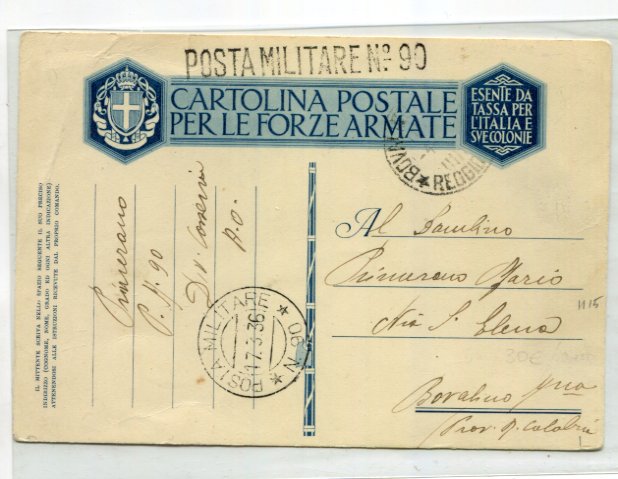 POSTA MILITARE Nº 90
CARTOLINA POSTALE
PER LE FORZE ARMATE
ESENTE DA
TASSA PER
L'ITALIA E
SVE COLONIE
BOVA
REGGIO
IL MITTENTE SCRIVA NELLO SPAZIO SEGUENTE IL SUO PRECISO
INDIRIZZO (COGNOME, NOME, GRADO ED OGNI ALTRA INDICAZIONE)
ATTENENDOSI ALLE ISTRUZIONI RICEVUTE DAL PROPRIO COMANDO.
Primerano
P. M. 90
A. O.
POSTA MILITARE N. 90
17.3.36
Al Bambino
Primerano Mario
Via S. Elena
1115
30€
Bovalino
(Prov. R. Calabria